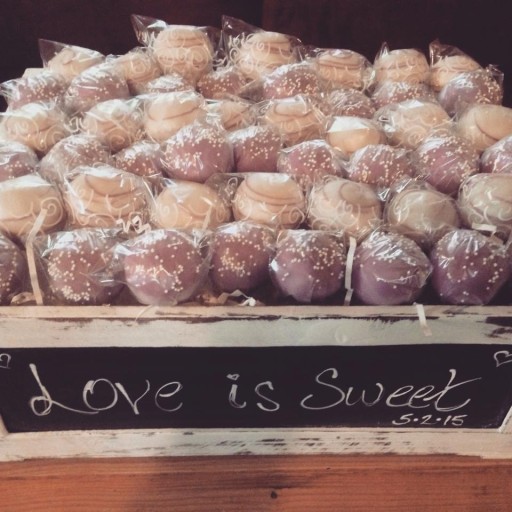 Love is Sweet
5.2.15